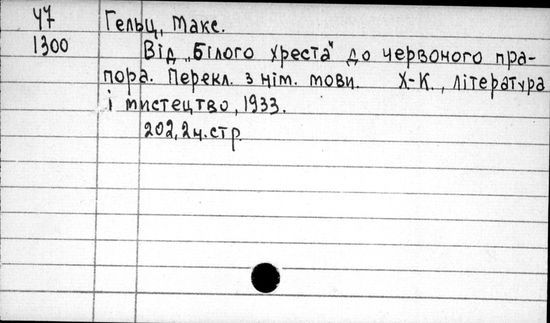 Ч7 Гельц, Макс.
1300 Від „Білого Хреста" до червоного пра-
пора. Перекл. з нім. мови. Х-К., література
і мистецтво, 1933.
202, 2 н. стр.